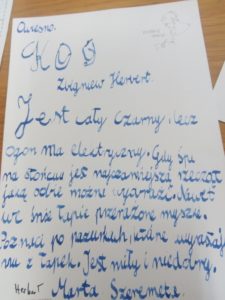 KOT
Zbigniew Herbert.
Jest cały czarny, lecz
ogon ma elektryczny. Gdy śpi
na słońcu jest najczarniejszą rzeczą
jaką sobie można wyobrazić. Nawet
we śnie łapie przerażone myszki.
Poznać po pazurkach, które wyrastają
mu z łapek. Jest miły i niedobry.
Herbert Marta Szeremeta